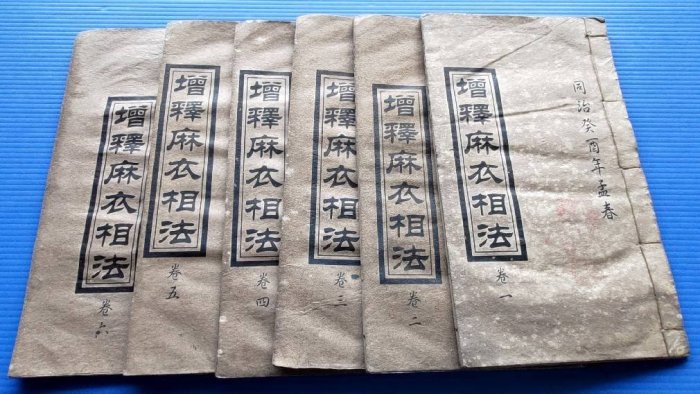 同治癸酉年孟春
增釋麻衣相法
卷一
增釋麻衣相法
卷二
增釋麻衣相法
卷三
增釋麻衣相法
卷四
增釋麻衣相法
卷五
增釋麻衣相法
卷六